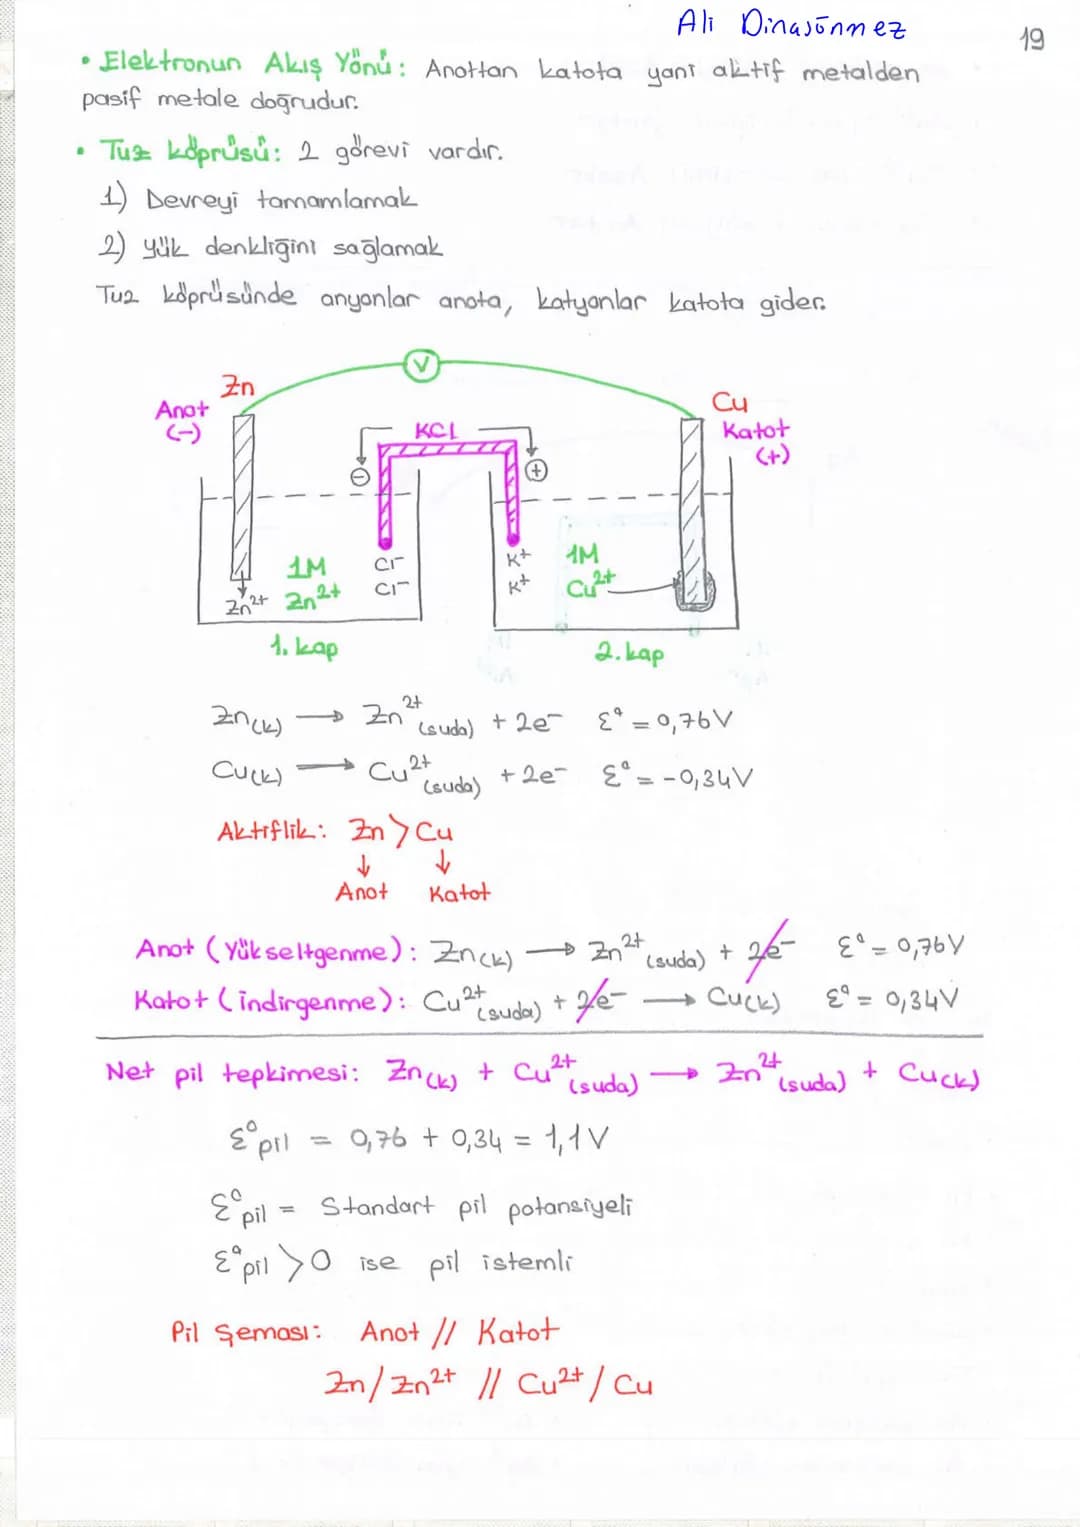 Ali Dinasönmez
19
• Elektronun Akış Yönü: Anottan katota yani aktif metalden
pasif metale doğrudur.
• Tuz köprüsü: 2 görevi vardır.
1) Devreyi tamamlamak
2) yük denkliğini sağlamak
Tuz köprüsünde anyonlar anota, katyonlar katota gider.
V
Zn
Anot
(-)
Cu
Katot
(+)
KCl
⊖
⊕
1M
Zn²⁺
Zn²⁺
Cl⁻
Cl⁻
K⁺
K⁺
1M
Cu²⁺
1. kap
2. kap
Zn(k) → Zn²⁺(suda) + 2e⁻ Ɛ° = 0,76V
Cu(k) → Cu²⁺(suda) + 2e⁻ Ɛ° = -0,34V
Aktiflik: Zn > Cu
↓ ↓
Anot Katot
Anot (Yükseltgenme): Zn(k) → Zn²⁺(suda) + 2e⁻ Ɛ° = 0,76V
Katot (indirgenme): Cu²⁺(suda) + 2e⁻ → Cu(k) Ɛ° = 0,34V
Net pil tepkimesi: Zn(k) + Cu²⁺(suda) → Zn²⁺(suda) + Cu(k)
Ɛ°pil = 0,76 + 0,34 = 1,1V
Ɛ°pil = Standart pil potansiyeli
Ɛ°pil > 0 ise pil istemli
Pil Şeması: Anot // Katot
Zn/Zn²⁺ // Cu²⁺/Cu